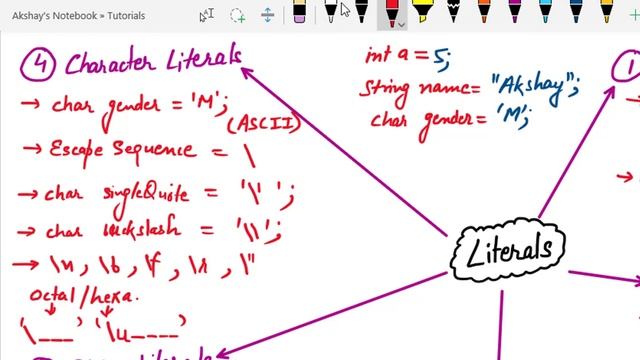 Akshay's Notebook » Tutorials
④ Character Literals
→ char gender = 'M';
(ASCII)
→ Escape Sequence = \
→ char singleQuote = '\' ';
→ char backslash = '\\';
→ \n, \b, \f, \r, \"
octal/hexa.
'\___' '\u____'
int a = 5;
String name = "Akshay";
char gender = 'M';
Literals
①